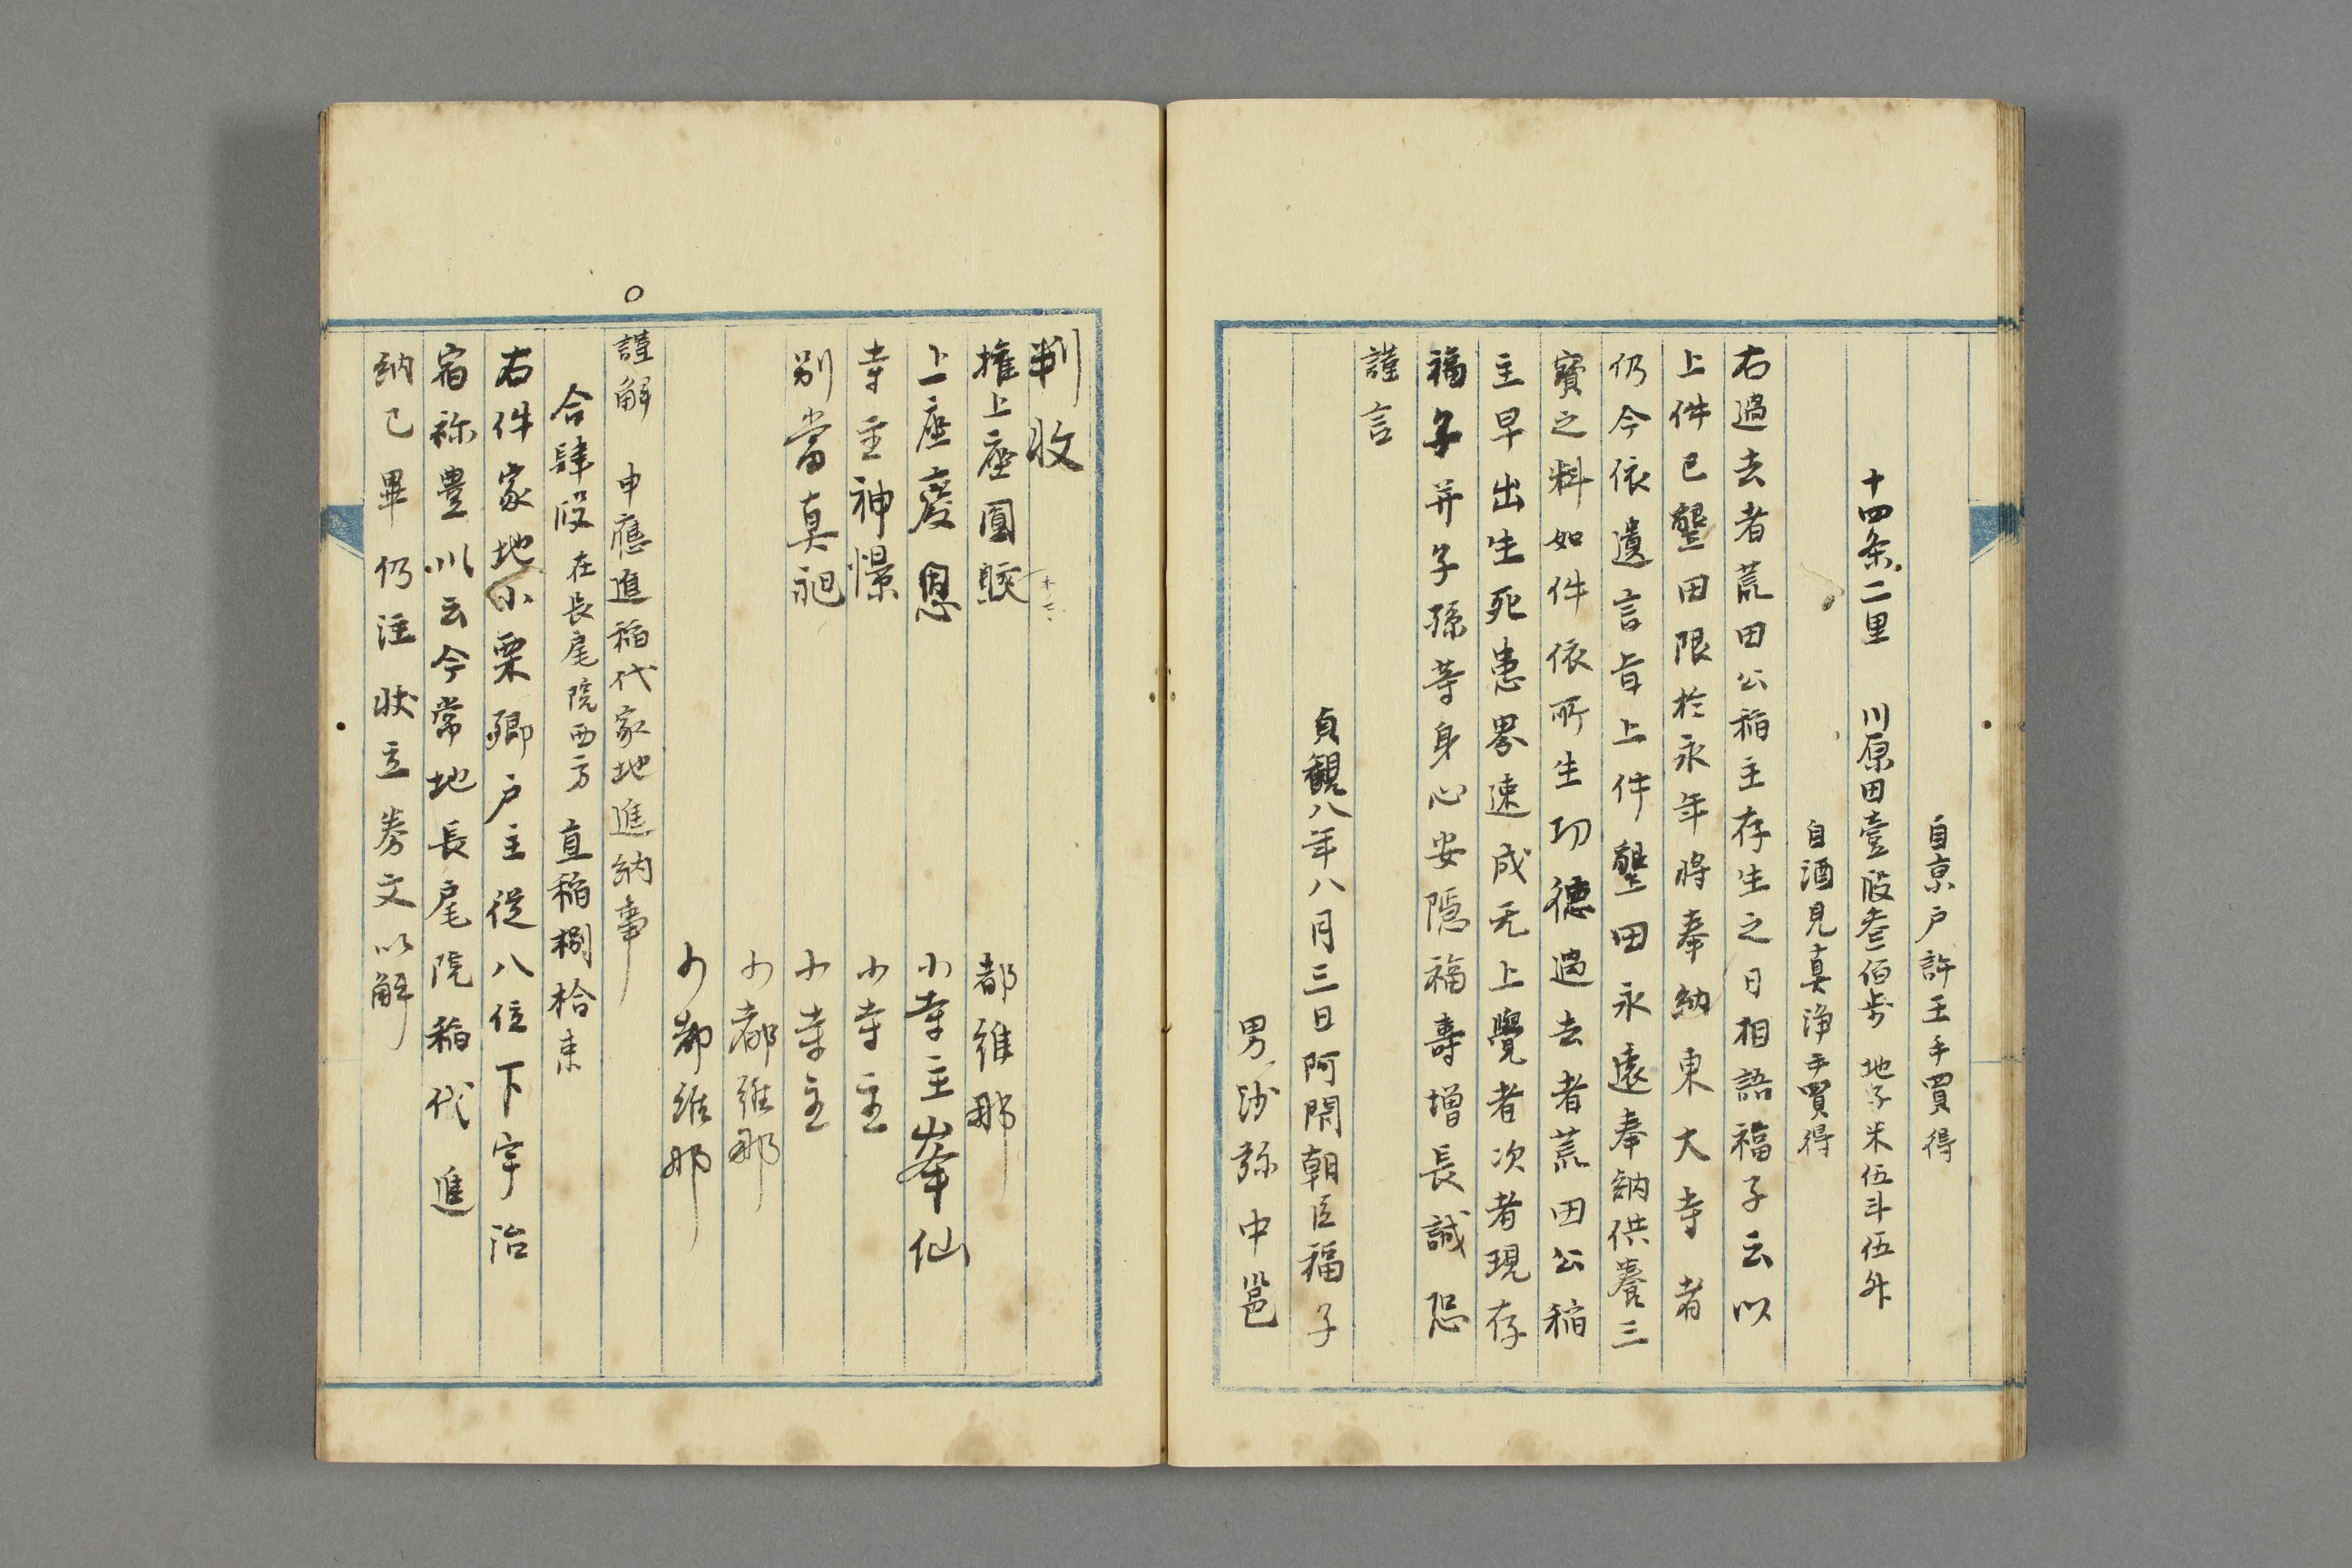 自京戸許王手買得
十四条二里　川原田壹段叄佰歩　地子米伍斗伍升
自酒見真淨手買得
右過去者荒田公稲主存生之日相語福子云以
上件已墾田限於永年將奉納東大寺者
仍今依遺言旨上件墾田永遠奉納供養三
寶之料如件依所生功德過去者荒田公稲
主早出生死患界速成无上覺者次者現存
福子并子孫等身心安隱福壽增長誠恐
謹言
貞觀八年八月三日阿閇朝臣福子
男沙弥中邕
判收
權上座圓　都維那
上座慶恩　小寺主峯仙
寺主神憬　小寺主
別當真昶　小寺主
少都維那
少都維那
謹解　申應進稲代家地進納事
合肆段在長尾院西方　直稲捌拾束
右件家地小栗鄉戸主從八位下宇治
宿祢豊川云今常地長尾院稲代進
納已畢仍注狀立券文以解